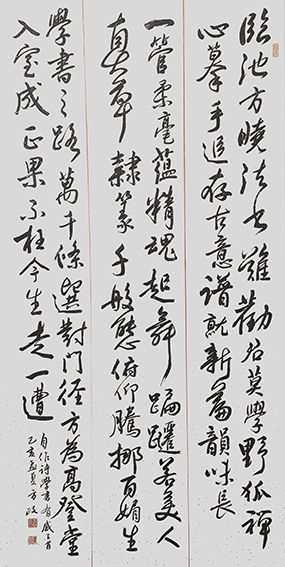 臨池方曉法書難勸君莫學野狐禪
心摹手追存古意譜就新篇韻味長
一管柔毫蘊精魂起舞蹁躚若美人
真草隸篆千般態俯仰騰挪百媚生
學書之路萬千條選對門徑方為高登堂
入室成正果不枉今生走一遭
自作詩學書有感三首
己亥孟夏方政